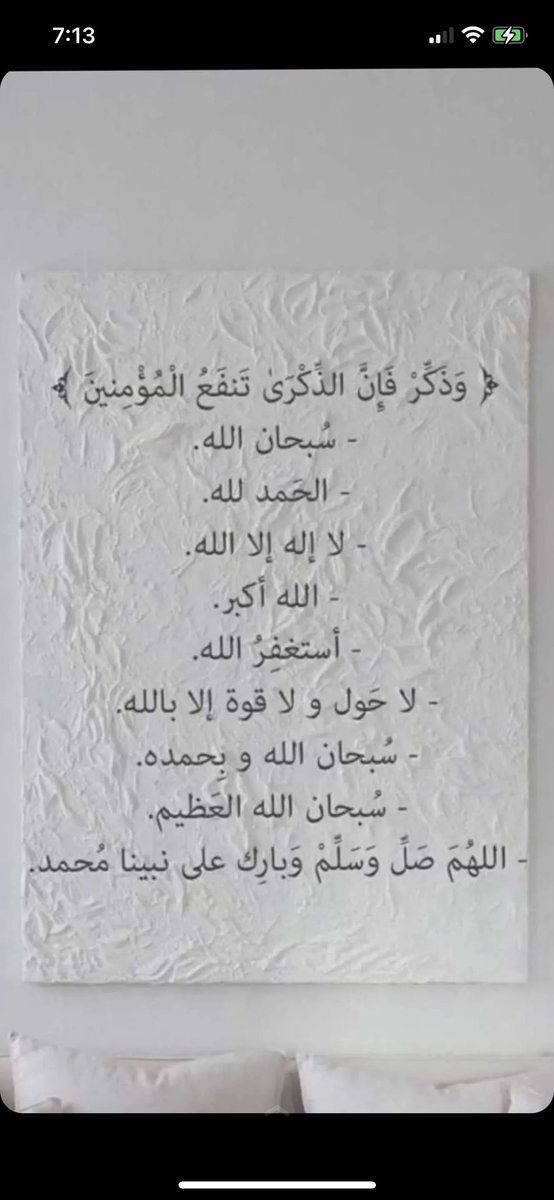 7:13
﴿ وَذَكِّرْ فَإِنَّ الذِّكْرَىٰ تَنفَعُ الْمُؤْمِنِينَ ﴾
- سُبحان الله.
- الحَمد لله.
- لا إله إلا الله.
- الله أكبر.
- أستغفِرُ الله.
- لا حَول و لا قوة إلا بالله.
- سُبحان الله و بِحمده.
- سُبحان الله العَظيم.
- اللهُمَ صَلِّ وَسَلِّمْ وَبارِك على نبينا مُحمد.